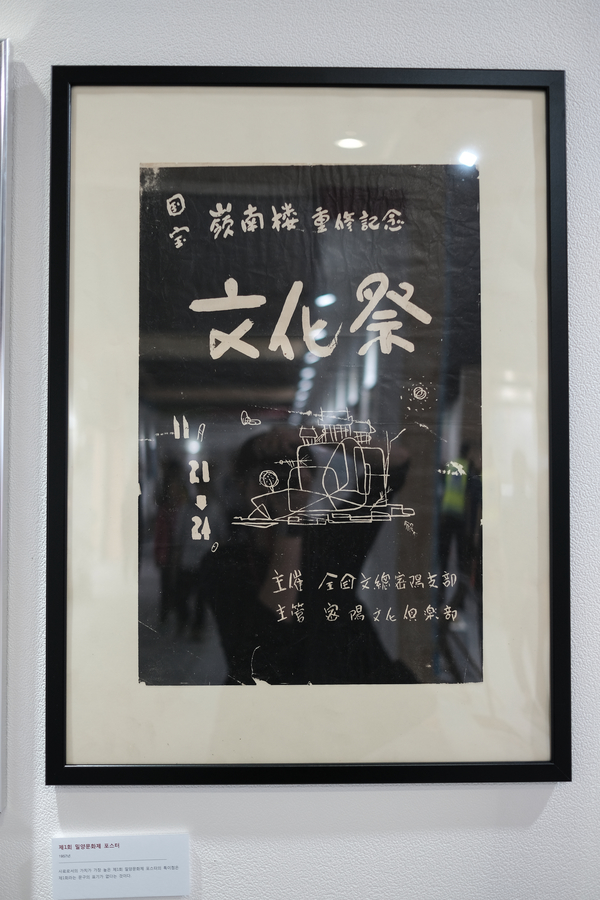 国宝 嶺南楼 重修記念
文化祭
11月
21
24日
主催 全国文總密陽支部
主管 密陽文化俱楽部
제1회 밀양문화제 포스터